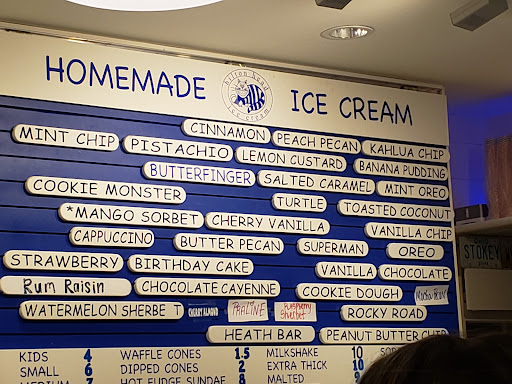 HOMEMADE
hilton head
ice cream
ICE CREAM
CINNAMON
PEACH PECAN
KAHLUA CHIP
MINT CHIP
PISTACHIO
LEMON CUSTARD
BANANA PUDDING
BUTTERFINGER
SALTED CARAMEL
MINT OREO
COOKIE MONSTER
TURTLE
TOASTED COCONUT
*MANGO SORBET
CHERRY VANILLA
VANILLA CHIP
CAPPUCCINO
BUTTER PECAN
SUPERMAN
OREO
STRAWBERRY
BIRTHDAY CAKE
VANILLA
CHOCOLATE
Rum Raisin
CHOCOLATE CAYENNE
COOKIE DOUGH
WATERMELON SHERBE T
CHERRY ALMOND
PRALINE
Raspberry
Sherbet
ROCKY ROAD
HEATH BAR
PEANUT BUTTER CHIP
KIDS 4 WAFFLE CONES 1.5 MILKSHAKE 10
SMALL 6 DIPPED CONES 2 EXTRA THICK 10
MEDIUM 7 HOT FUDGE SUNDAE 8 MALTED
STOKEY